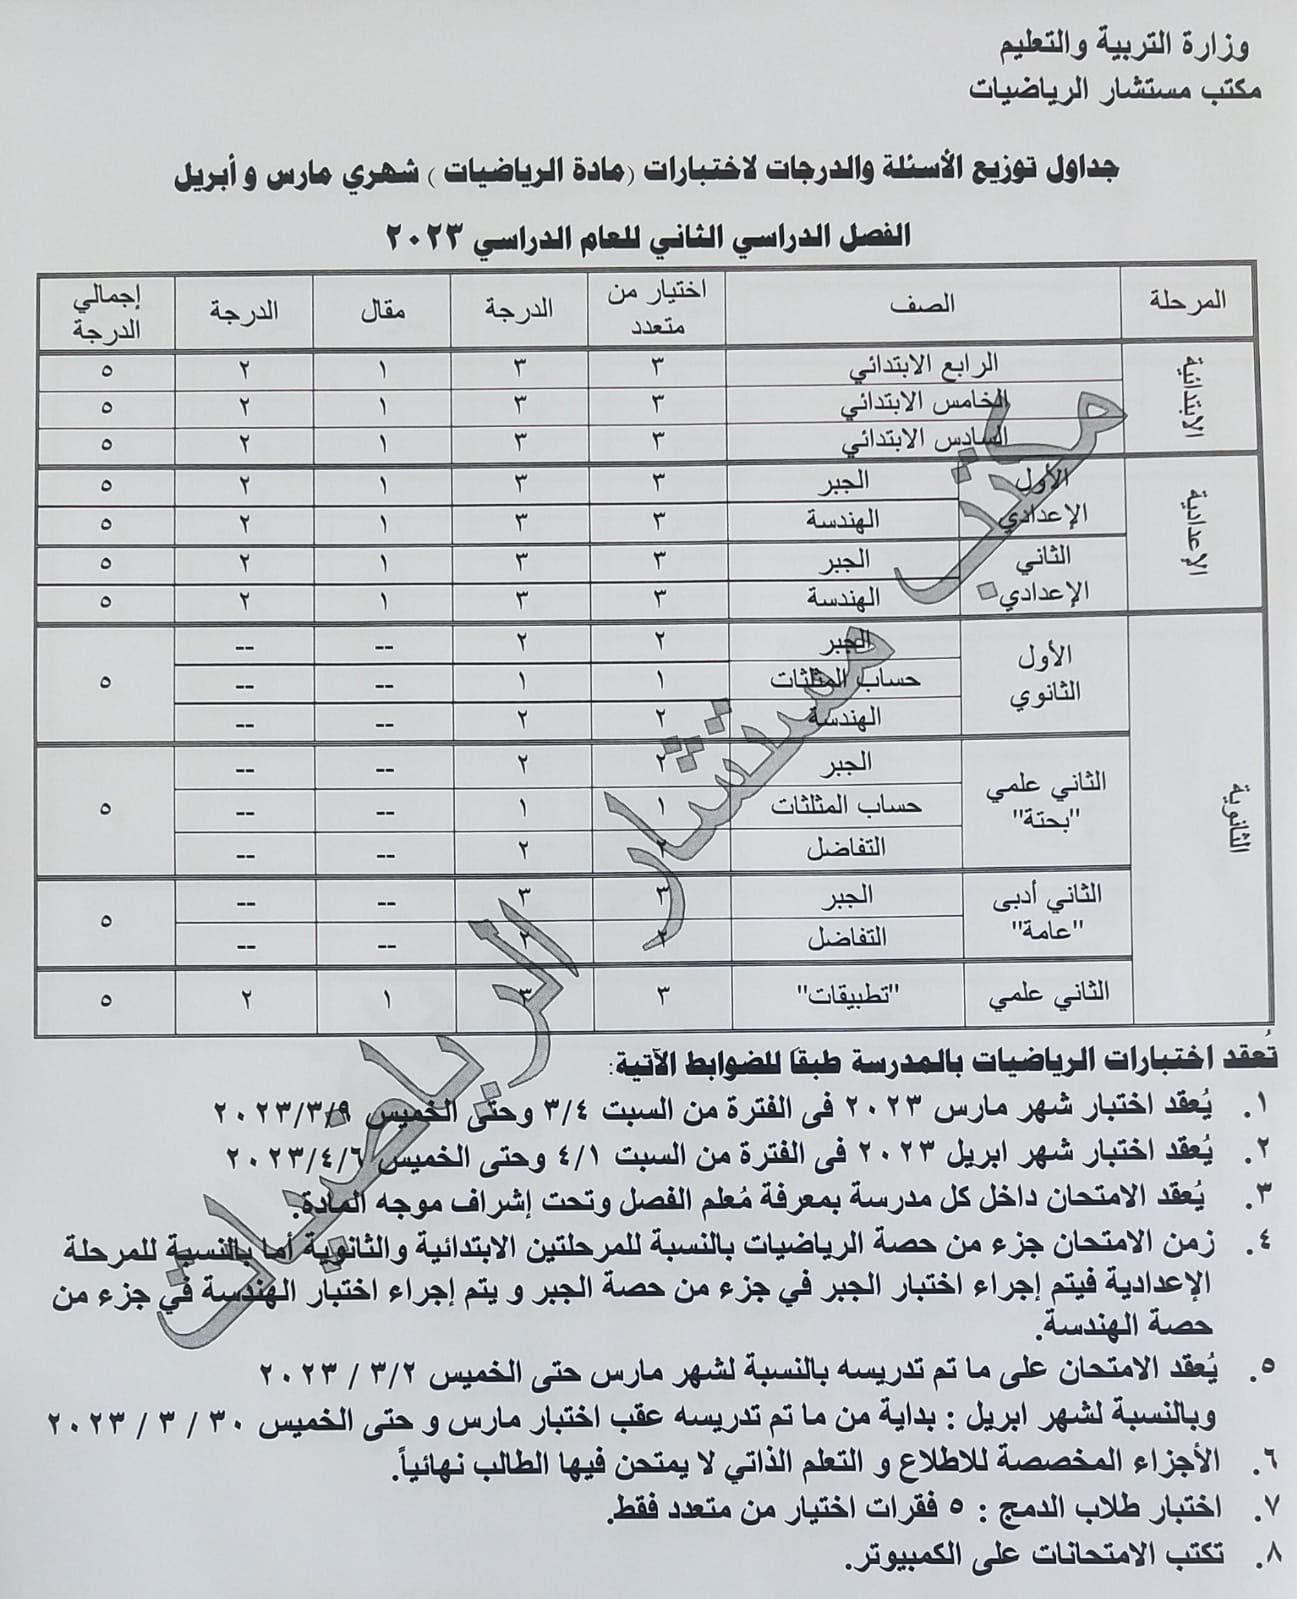 وزارة التربية والتعليم
مكتب مستشار الرياضيات
جداول توزيع الأسئلة والدرجات لاختبارات (مادة الرياضيات) شهري مارس و أبريل
الفصل الدراسي الثاني للعام الدراسي ٢٠٢٣
المرحلة الصف اختيار من متعدد الدرجة مقال الدرجة إجمالي الدرجة
الابتدائية
الرابع الابتدائي ٣ ٣ ١ ٢ ٥
الخامس الابتدائي ٣ ٣ ١ ٢ ٥
السادس الابتدائي ٣ ٣ ١ ٢ ٥
الإعدادية
الأول الإعدادي
الجبر ٣ ٣ ١ ٢ ٥
الهندسة ٣ ٣ ١ ٢ ٥
الثاني الإعدادي
الجبر ٣ ٣ ١ ٢ ٥
الهندسة ٣ ٣ ١ ٢ ٥
الثانوية
الأول الثانوي
الجبر ٢ ٢ -- --
حساب المثلثات ١ ١ -- -- ٥
الهندسة ٢ ٢ -- --
الثاني علمي "بحتة"
الجبر ٢ ٢ -- --
حساب المثلثات ١ ١ -- -- ٥
التفاضل ٢ ٢ -- --
الثاني أدبى "عامة"
الجبر ٣ ٣ -- -- ٥
التفاضل ٢ ٢ -- --
الثاني علمي "تطبيقات" ٣ ٣ ١ ٢ ٥
تُعقد اختبارات الرياضيات بالمدرسة طبقا للضوابط الآتية:
١. يُعقد اختبار شهر مارس ٢٠٢٣ فى الفترة من السبت ٣/٤ وحتى الخميس ٢٠٢٣/٣/٩
٢. يُعقد اختبار شهر ابريل ٢٠٢٣ فى الفترة من السبت ٤/١ وحتى الخميس ٢٠٢٣/٤/٦
٣. يُعقد الامتحان داخل كل مدرسة بمعرفة مُعلم الفصل وتحت إشراف موجه المادة.
٤. زمن الامتحان جزء من حصة الرياضيات بالنسبة للمرحلتين الابتدائية والثانوية أما بالنسبة للمرحلة
الإعدادية فيتم إجراء اختبار الجبر في جزء من حصة الجبر و يتم إجراء اختبار الهندسة في جزء من
حصة الهندسة.
٥. يُعقد الامتحان على ما تم تدريسه بالنسبة لشهر مارس حتى الخميس ٣/٢ / ٢٠٢٣
وبالنسبة لشهر ابريل : بداية من ما تم تدريسه عقب اختبار مارس و حتى الخميس ٣٠ / ٣ / ٢٠٢٣
٦. الأجزاء المخصصة للاطلاع و التعلم الذاتي لا يمتحن فيها الطالب نهائياً.
٧. اختبار طلاب الدمج : ٥ فقرات اختيار من متعدد فقط.
٨. تكتب الامتحانات على الكمبيوتر.
مكتب مستشار الرياضيات